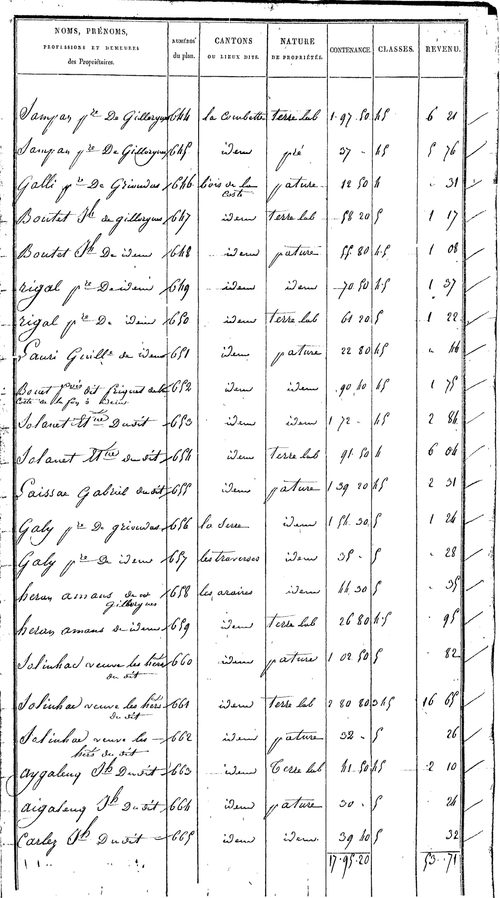 NOMS, PRÉNOMS, PROFESSIONS ET DEMEURES des Propriétaires. NUMÉROS du plan. CANTONS OU LIEUX DITS. NATURE DE PROPRIÉTÉS. CONTENANCE. CLASSES. REVENU.
Sampan pre De Gillorgues 644 la Combette terre lab 1 97 50 45 6 21
Sampan pre De Gillorgues 645 idem pré 37 - 45 5 76
Galli pre De Grioudas 646 bois de la Coste pature 12 50 4 - 31
Boutet Jh de gillorgues 647 idem terre lab - 58 20 5 1 17
Boutet Jh De idem 648 idem pature - 55 80 4-5 1 08
rigal pre De idem 649 idem idem - 70 50 4-5 1 37
rigal pre De idem 650 idem terre lab 61 20 5 1 22
Lauri Guille de idem 651 idem pature 22 80 45 - 44
Bouet dit de la Coste 652 idem idem - 90 40 45 1 75
Solanet Etne Du dit 653 idem idem 1 72 - 45 2 84
Solanet Etne du dit 654 idem terre lab 91 50 4 6 04
Laissac Gabriel du dit 655 idem pature 1 39 20 45 2 31
Galy pre De grioudas 656 la Serre idem 1 54 30 5 1 24
Galy pre De idem 657 les traverses idem 35 - 5 - 28
heran amans de Gillorgues 658 les araires idem 44 30 5 - 35
heran amans de idem 659 idem terre lab 26 80 4-5 - 95
Solinhac veuve les hers du dit 660 idem pature 1 02 50 5 82
Solinhac veuve les hers du dit 661 idem terre lab 2 80 80 345 16 65
Solinhac veuve les hers du dit 662 idem pature 32 - 5 26
aygaleng Jh Du dit 663 idem terre lab 41 50 45 2 10
aigaleng Jh Du dit 664 idem pature 30 - 5 24
Carlez Jh Du dit 665 idem idem 39 40 5 32
17.95.20 53.71